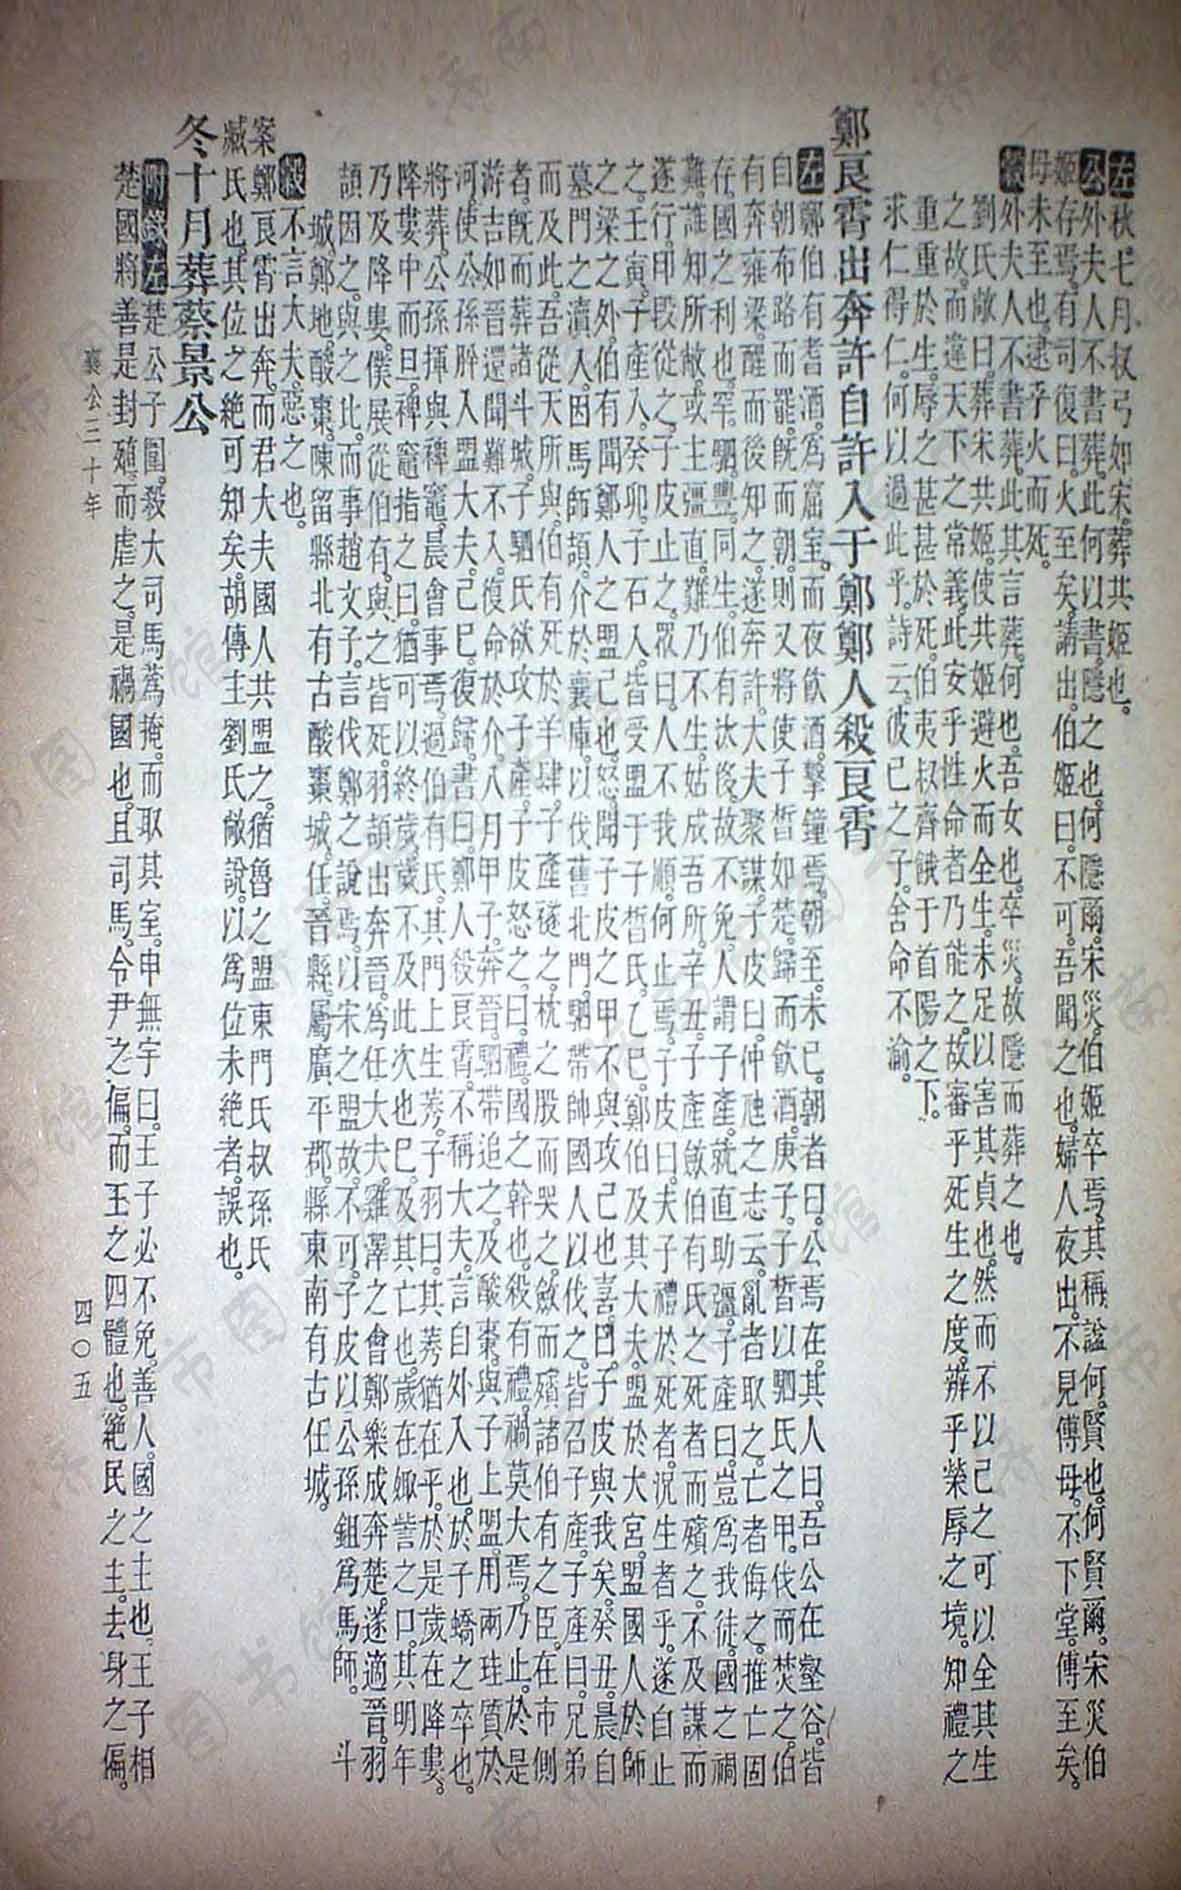 左秋七月叔弓如宋葬共姬也。
公外夫人不書葬。此何以書。隱之也。何隱爾。宋災。伯姬卒焉。其稱謚何。賢也。何賢爾。宋災。伯
姬存焉。有司復曰。火至矣。請出。伯姬曰。不可。吾聞之也。婦人夜出。不見傅母。不下堂。傅至矣。
母未至也。逮乎火而死。
穀外夫人不書葬。此其言葬何也。吾女也。卒災。故隱而葬之也。
劉氏敞曰。葬宋共姬。使共姬避火而全生。未足以害其貞也。然而不以己之可以全其生
之故。而違天下之常義。此安乎性命者乃能之。故審乎死生之度。辨乎榮辱之境。知禮之
重重於生。辱之甚甚於死。伯夷叔齊餓于首陽之下。
求仁得仁。何以過此乎。詩云。彼己之子。舍命不渝。
鄭良霄出奔許自許入于鄭鄭人殺良霄
左鄭伯有耆酒。爲窟室。而夜飲酒。擊鐘焉。朝至。未已。朝者曰。公焉在。其人曰。吾公在壑谷。皆
自朝布路而罷。既而朝。則又將使子皙如楚。歸而飲酒。庚子。子皙以駟氏之甲。伐而焚之。伯
有奔雍梁。醒而後知之。遂奔許。大夫聚謀。子皮曰。仲虺之志云。亂者取之。亡者侮之。推亡固
存。國之利也。罕駟豐同生。伯有汰侈。故不免。人謂子產。就直助彊。子產曰。豈爲我徒。國之禍
難。誰知所敝。或主彊直。難乃不生。姑成吾所。辛丑。子產斂伯有氏之死者而殯之。不及謀而
遂行。印段從之。子皮止之。眾曰。人不我順。何止焉。子皮曰。夫子禮於死者。況生者乎。遂自止
之。壬寅。子產入。癸卯。子石入。皆受盟于子皙氏。乙巳。鄭伯及其大夫。盟於大宮。盟國人於師
之梁之外。伯有聞鄭人之盟己也。怒。聞子皮之甲不與攻己也。喜。曰。子皮與我矣。癸丑。晨自
墓門之瀆入。因馬師頡。介於襄庫。以伐舊北門。駟帶帥國人以伐之。皆召子產。子產曰。兄弟
而及此。吾從天所與。伯有死於羊肆。子產襚之。枕之股而哭之。斂而殯諸伯有之臣。在市側
者。既而葬諸斗城。子駟氏欲攻子產。子皮怒之。曰。禮。國之幹也。殺有禮。禍莫大焉。乃止。於是
游吉如晉還。聞難不入。復命於介。八月甲子。奔晉。駟帶追之。及酸棗。與子上盟。用兩珪質於
河。使公孫肸入盟大夫。己巳。復歸。書曰。鄭人殺良霄。不稱大夫。言自外入也。於子蟜之卒也。
將葬。公孫揮與裨竈。晨會事焉。過伯有氏。其門上生莠。子羽曰。其莠猶在乎。於是歲在降婁。
降婁中而旦。裨竈指之曰。猶可以終歲。歲不及此次也已。及其亡也。歲在娵訾之口。其明年
乃及降婁。僕展從伯有。與之皆死。羽頡出奔晉。爲任大夫。雞澤之會。鄭樂成奔楚。遂適晉。羽
頡因之。與之比。而事趙文子。言伐鄭之說焉。以宋之盟故。不可。子皮以公孫鉏爲馬師。　斗
城。鄭地。酸棗。陳留縣北有古酸棗城。任。晉縣。屬廣平郡。縣東南有古任城。
穀不言大夫。惡之也。
案鄭良霄出奔。而君大夫國人共盟之。猶魯之盟東門氏叔孫氏
臧氏也。其位之絶可知矣。胡傳主劉氏敞說。以爲位未絶者。誤也。
冬十月葬蔡景公
附錄左楚公子圍。殺大司馬蔿掩。而取其室。申無宇曰。王子必不免。善人。國之主也。王子相
楚國。將善是封殖。而虐之。是禍國也。且司馬。令尹之偏。而王之四體也。絶民之主。去身之偏。
襄公三十年
四〇五